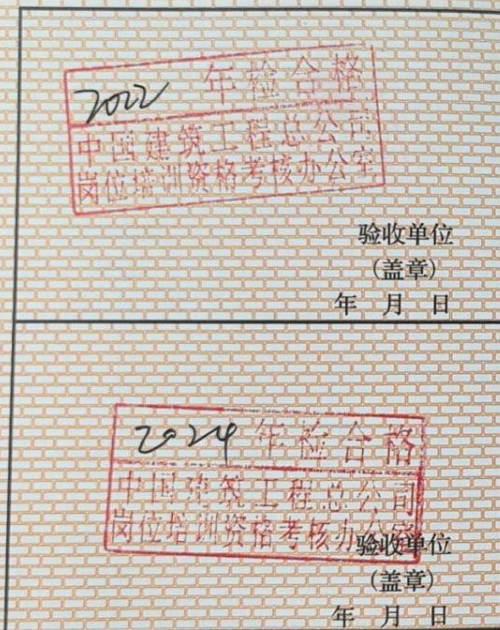 2022 年检合格
中国建筑工程总公司
岗位培训资格考核办公室
验收单位
(盖章)
年 月 日
2024 年检合格
中国建筑工程总公司
岗位培训资格考核办公室
验收单位
(盖章)
年 月 日